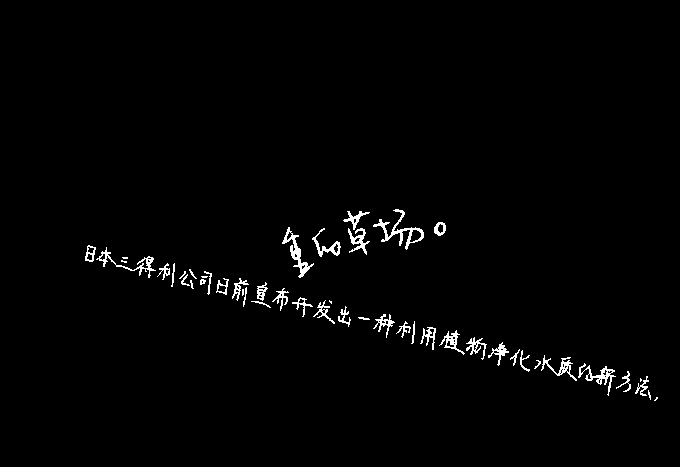 重的草场。
日本三得利公司日前宣布开发出一种利用植物净化水质的新方法,